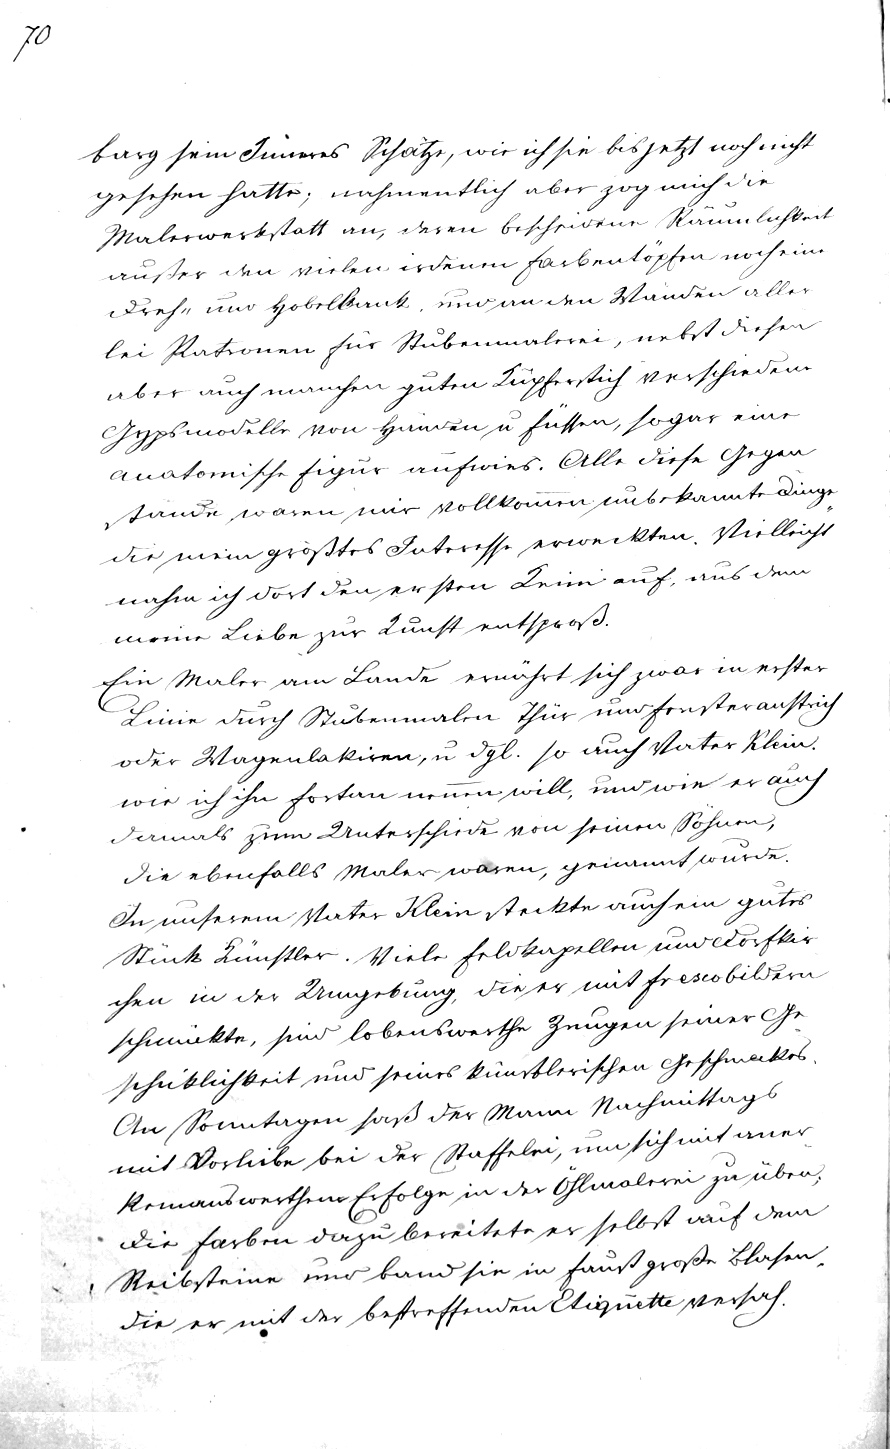 70
barg sein Inneres Schätze, wie ich sie bis jetzt noch nicht
gesehen hatte; nahmentlich aber zog mich die
Malerwerkstatt an, deren bescheidene Räumlichkeit
außer den vielen irdenen Farbentöpfen noch eine
Dreh- und Hobelbank, und an den Wänden aller
lei Patronen für Stubenmalerei, nebst diesen
aber auch manchen guten Kupferstich verschiedene
Gypsmodelle von Händen u Füssen, sogar eine
anatomische Figur aufwies. Alle diese Gegen
stände waren mir vollkom̅en unbekannte Dinge,
die mein größtes Interesse erweckten. Vielleicht
nahm ich dort den ersten Keim auf, aus dem
meine Liebe zur Kunst entsproß.
Ein Maler am Lande ernährt sich zwar in erster
Linie durch Stubenmalen Thür und Fensteranstrich
oder Wagenlakiren, u dgl. so auch Vater Klein.
wie ich ihn fortan nen̅en will, und wie er auch
damals zum Unterschiede von seinen Söhnen,
die ebenfalls Maler waren, genannt wurde.
In unserem Vater Klein steckte auch ein gutes
Stück Künstler. Viele Feldkapellen und Dorfkir
chen in der Umgebung, die er mit Frescobildern
schmückte, sind lobenswerthe Zeugen seiner Ge
schiklichkeit und seines künstlerischen Geschmakes.
An Sonntagen saß der Mann Nachmittags
mit Vorliebe bei der Staffelei, um sich mit aner
kennanswerthem Erfolge in der Öhlmalerei zu üben;
die Farben dazu bereitete er selbst auf dem
Reibsteine und band sie in faustgroße Blasen,
die er mit der betreffenden Etiquette versah.